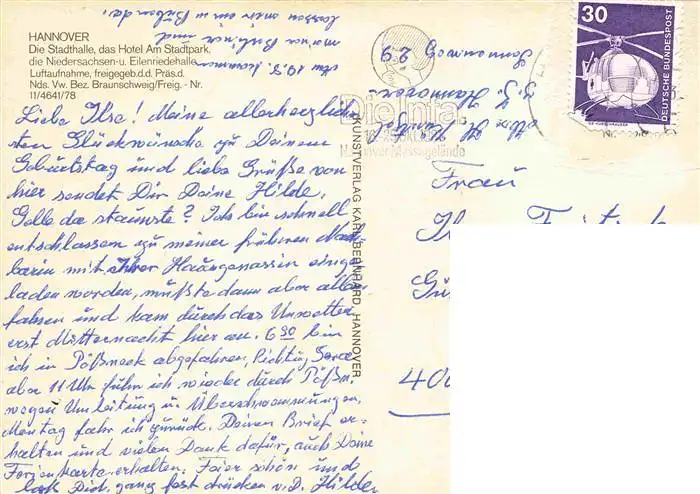 HANNOVER
Die Stadthalle, das Hotel Am Stadtpark,
die Niedersachsen-u. Eilenriedehalle
Luftaufnahme, freigegeb.d.d. Präs.d.
Nds. Vw. Bez. Braunschweig/Freig. - Nr.
11/4641/78
Liebe Ilse! Meine allerherzlich-
sten Glückwünsche zu Deinem
Geburtstag und liebe Grüße von
hier sendet Dir Deine Hilde.
Gelle da staunste? Ich bin schnell
entschlossen zu meiner früheren Nach-
barin mit ihrer Hausgenossin einge-
laden worden, mußte dann aber allein
fahren und kam durch das Unwetter
erst Mitternacht hier an. 6 30 bin
ich in Pößneck abgefahren, Richtung
aber 11 Uhr fuhr ich wieder durch Pößn.
wegen Umleitung u. Überschwemmungen,
Montag fahr ich zurück. Deinen Brief er-
halten und vielen Dank dafür, auch Deine
Ferienkarte erhalten. Feier schön und
laß Dich ganz fest drücken v. D. Hilde
KUNSTVERLAG KARL BERNHARD, HANNOVER
30
DEUTSCHE BUNDESPOST
Die Infa
Hannover Messegelände
Frau
400